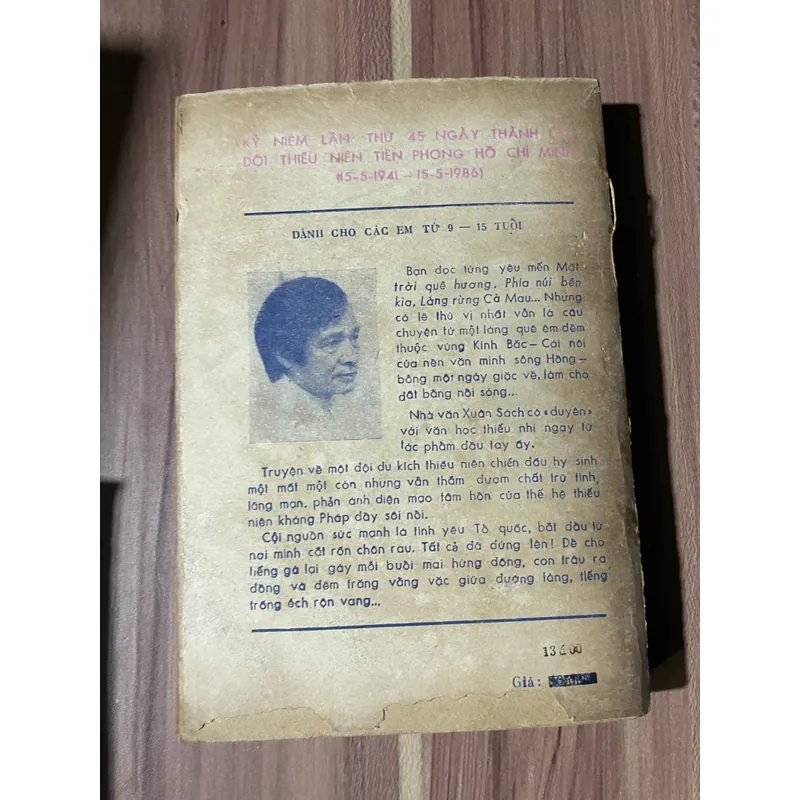 KỶ NIỆM LẦN THỨ 45 NGÀY THÀNH
ĐỘI THIẾU NIÊN TIỀN PHONG HỒ CHÍ MINH
(15-5-1941 — 15-5-1986)
DÀNH CHO CÁC EM TỪ 9 — 15 TUỔI
Bạn đọc từng yêu mến Mặt
trời quê hương, Phía núi bên
kia, Làng rừng Cà Mau... Nhưng
có lẽ thú vị nhất vẫn là câu
chuyện từ một làng quê êm đềm
thuộc vùng Kinh Bắc — Cái nôi
của nền văn minh sông Hồng —
bỗng một ngày giặc về, làm cho
đất bằng nổi sóng...
Nhà văn Xuân Sách có «duyên»
với văn học thiếu nhi ngay từ
tác phẩm đầu tay ấy.
Truyện về một đội du kích thiếu niên chiến đấu hy sinh
một mất một còn nhưng vẫn thắm đượm chất trữ tình,
lãng mạn, phản ánh diện mạo tâm hồn của thế hệ thiếu
niên kháng Pháp đầy sôi nổi.
Cội nguồn sức mạnh là tình yêu Tổ quốc, bắt đầu từ
nơi mình cắt rốn chôn rau. Tất cả đã đứng lên! Để cho
tiếng gà lại gáy mỗi buổi mai hừng đông, con trâu ra
đồng và đêm trăng vằng vặc giữa đường làng, tiếng
trống ếch rộn vang...
13đ00
Giá: